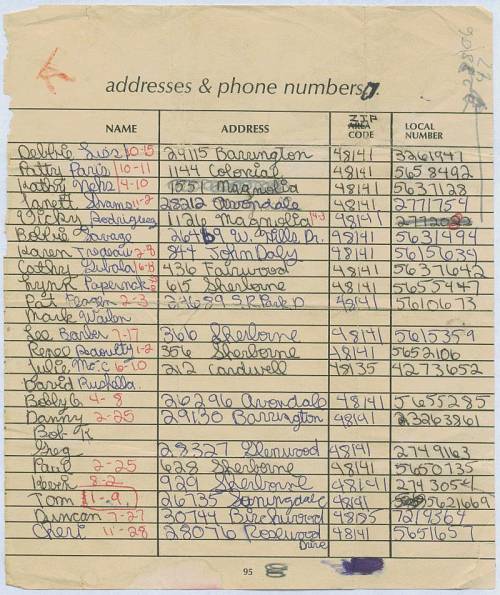 addresses & phone numbers
ZIP
NAME ADDRESS AREA CODE LOCAL NUMBER
Debbie Sies 10-15 29115 Barrington 48141 3261947
Patty Paris 10-11 1144 Colonial 48141 5658492
Kathy 4-10 1551 Magnolia 48141 5637128
Janett Shams 11-2 28212 Avondale 48141 2771754
Vicky Rodriguez 1126 Magnolia 4-3 48141
Bobbie Savage 26469 W. Hills Dr. 48141 5631494
Karen 2-8 844 John Daly 48141 5615634
Cathy 6-8 436 Fairwood 48141 5637642
Lynn 615 Sherborne 48141 5655447
Pat 2-3 24689 48141 5610673
Mark
Lee Barber 7-17 366 Sherborne 48141 5615359
Renee 1-2 356 Sherborne 48141 5652106
Julie 6-10 212 Cardwell 48135 4273652
David
Bobby G 4-8 26296 Avondale 48141 5655285
Danny 2-25 29130 Barrington 48141 3263861
Bob K
Greg 28327 Glenwood 48141 2749163
Paul 2-25 628 Sherborne 48141 5650735
8-2 929 Sherborne 48141 2743054
Tom 1-9 26735 48141 5621669
Duncan 7-27 30744 Birchwood 48185 7219364
Cheri 11-28 28076 Rosewood 48141 5651657
Drive
95